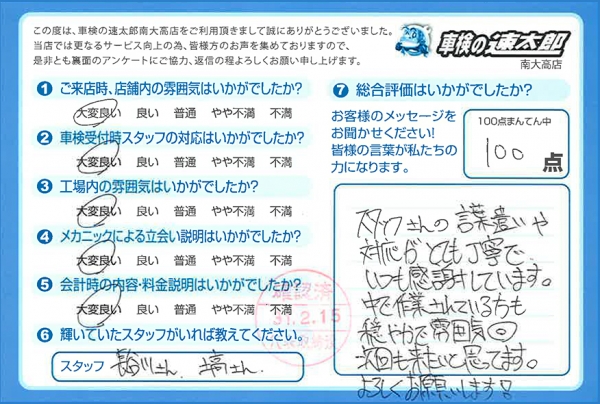 この度は、車検の速太郎南大高店をご利用頂きまして誠にありがとうございました。
当店では更なるサービス向上の為、皆様方のお声を集めておりますので、
是非とも裏面のアンケートにご協力、返信の程よろしくお願い申し上げます。
車検の速太郎
南大高店
1 ご来店時、店舗内の雰囲気はいかがでしたか?
大変良い 良い 普通 やや不満 不満
2 車検受付時スタッフの対応はいかがでしたか?
大変良い 良い 普通 やや不満 不満
3 工場内の雰囲気はいかがでしたか?
大変良い 良い 普通 やや不満 不満
4 メカニックによる立会い説明はいかがでしたか?
大変良い 良い 普通 やや不満 不満
5 会計時の内容・料金説明はいかがでしたか?
大変良い 良い 普通 やや不満 不満
6 輝いていたスタッフがいれば教えてください。
スタッフ 長谷川さん、 さん
確認済
31.2.15
7 総合評価はいかがでしたか?
お客様のメッセージを
お聞かせください!
皆様の言葉が私たちの
力になります。
100点まんてん中
100 点
スタッフさんの言葉遣いや
対応がとても丁寧で、
いつも感謝しています。
中で作業している方も
穏やかで雰囲気◎
次回も来たいと思ってます。
よろしくお願いします!